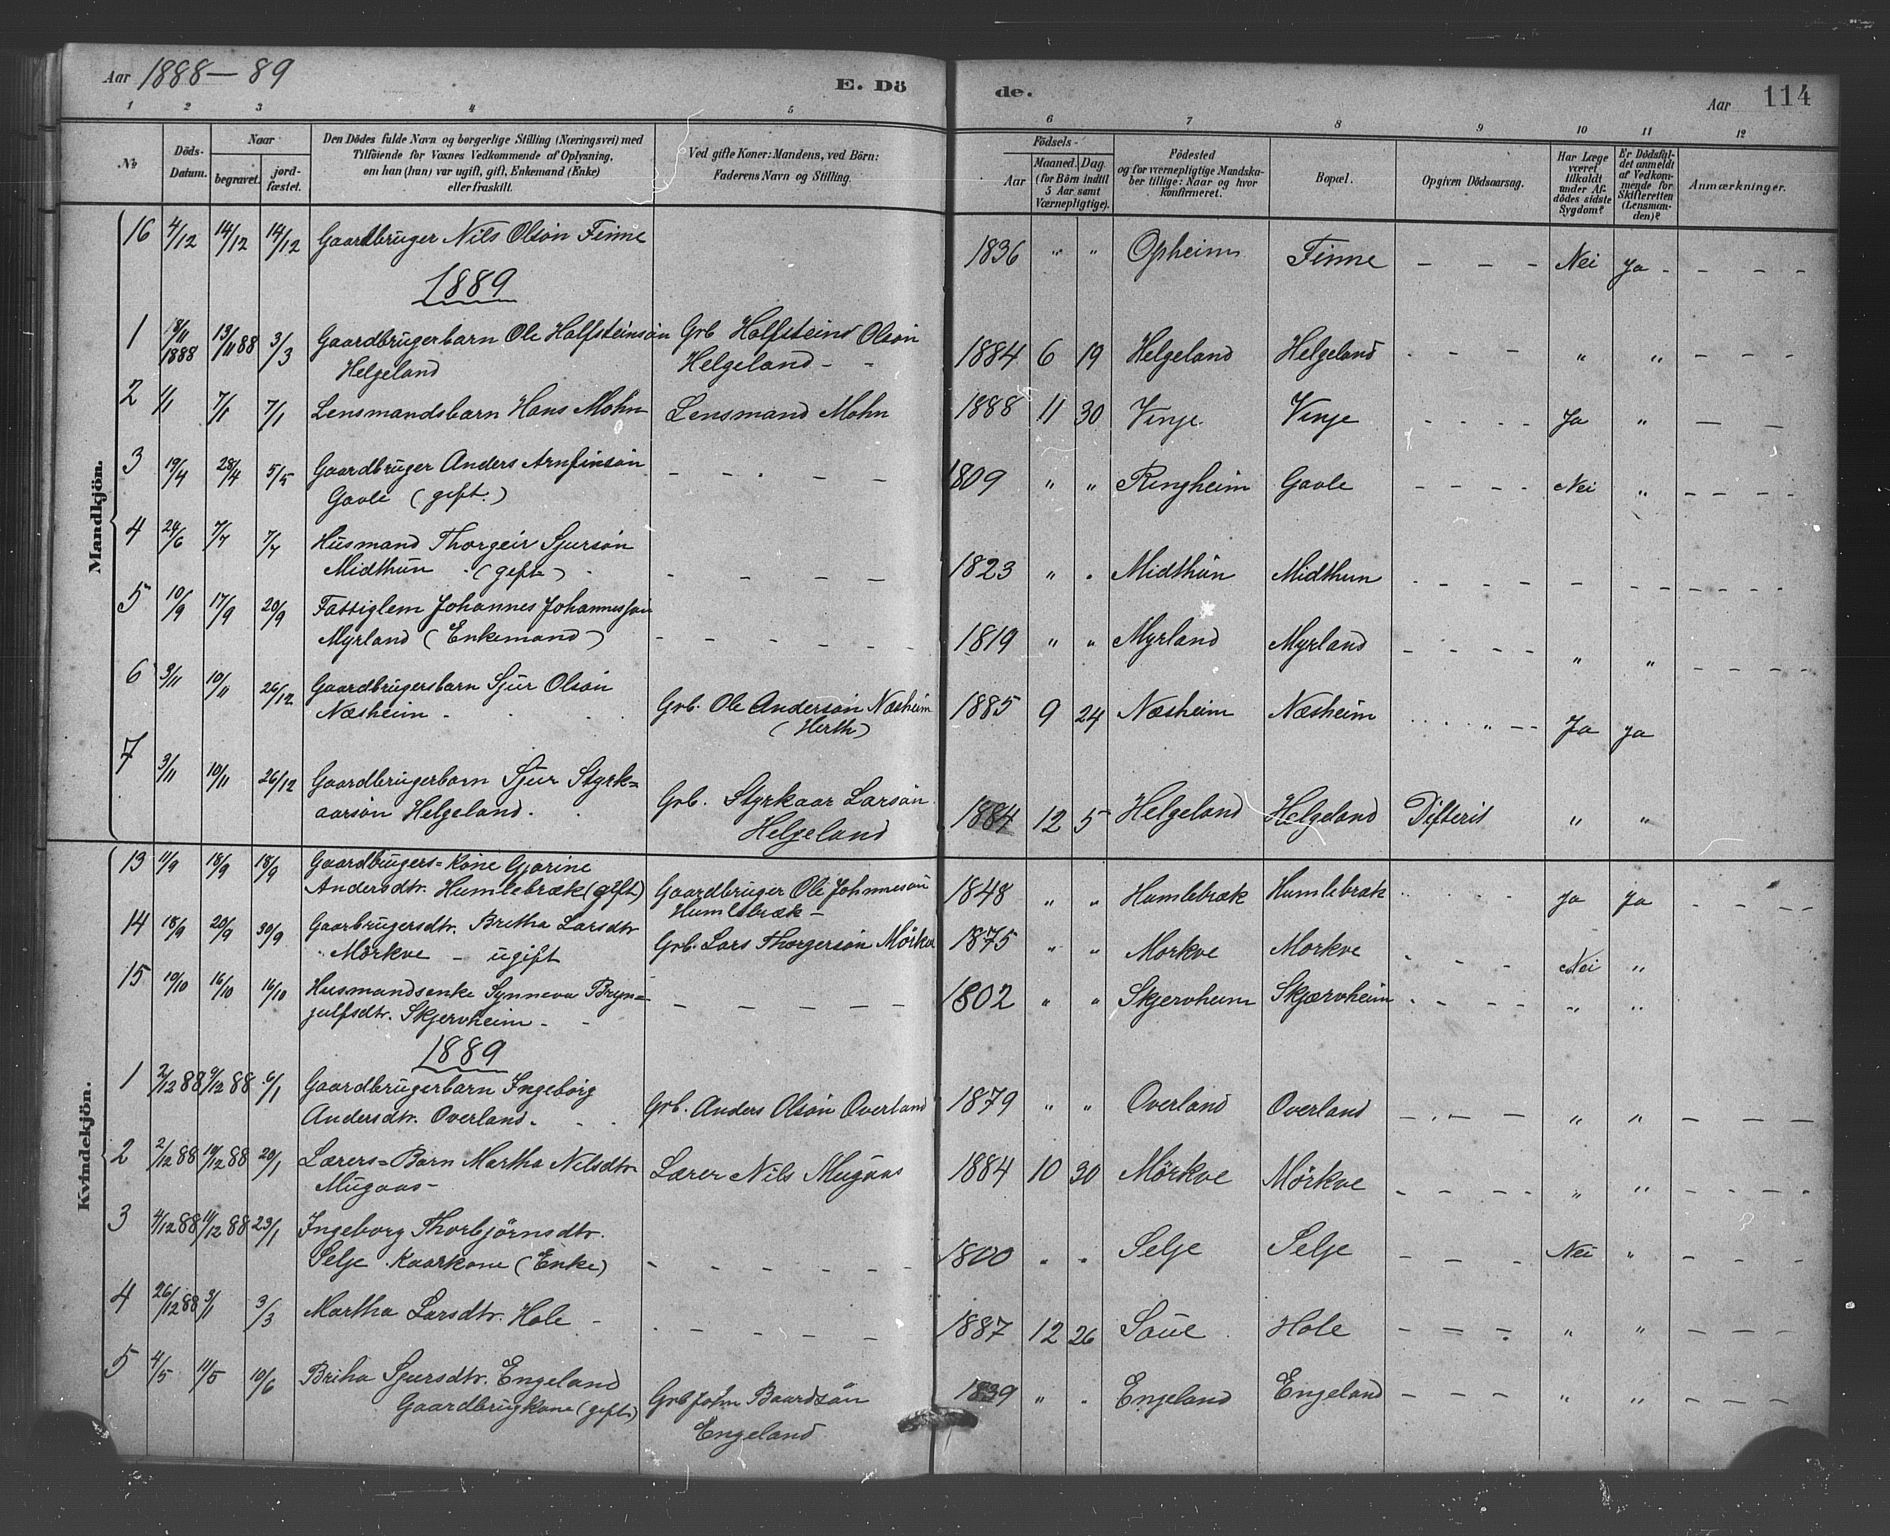 Aar 1888–89 E. Dö de. Aar 114
1 2 3 4 5 6 7 8 9 10 11 12
No
Döds-
Datum.
Naar
begravet.
jord-
fæstet.
Den Dödes fulde Navn og borgerlige Stilling (Næringsvei) med
Tilföiende for Voxnes Vedkommende af Oplysning,
om han (hun) var ugift, gift, Enkemand (Enke)
eller fraskilt.
Ved gifte Koner: Mandens, ved Börn:
Faderens Navn og Stilling.
Födsels-
Aar
Maaned. Dag.
(for Börn indtil
5 Aar samt
Værnepligtige).
Födested
og for værnepligtige Mandska-
ber tillige: Naar og hvor
Konfirmeret.
Bopæl.
Opgiven Dödsaarsag.
Har Læge
været
tilkaldt
under Af-
dödes sidste
Sygdom?
Er Dödsfal-
det anmeldt
af Vedkom-
mende for
Skifteretten
(Lensman-
den)?
Anmærkninger.
Mandkjön.
16 4/12 14/12 14/12 Gaardbruger Nils Olsön Finne 1836 " " Opheim Finne – – – Nei Ja - – – –
1889
1 8/11 1888 13/11 88 3/3 Gaardbrugerbarn Ole Halfsteinsön Grb Halfsteins Olsön 1884 6 19 Helgeland Helgeland - – – " " – – –
Helgeland Helgeland – -
2 1/1 7/1 7/1 Lensmandsbarn Hans Mohn Lensmand Mohn 1888 11 30 Vinje Vinje - - - - Ja " – –
3 19/4 28/4 5/5 Gaardbruger Anders Arnfinsön – – - – – 1809 " " Ringheim Gavle – – – – Nei " – – – –
Gavle (gift.)
4 24/6 7/7 7/7 Husmand Thorgeir Sjursön
Midthun (gift) – – – – 1823 " " Midthun Midthun – – – – – – – – –
5 10/9 17/9 20/9 Fattiglem Johannes Johannesson
Myrland (Enkemand) – – – – – – 1819 " " Myrland Myrland – – – – " " – – – –
6 3/11 10/11 26/12 Gaardbrugersbarn Sjur Olsön
Næsheim - Grb. Ole Andersön Næsheim 1885 9 24 Næsheim Næsheim - - - " – – Ja Ja
(Herth)
7 3/11 10/11 26/12 Gaardbrugerbarn Sjur Styrk=
aarsön Helgeland. Grb. Styrkaar Larsön 1884 12 5 Helgeland Helgeland Difterit " "
Helgeland
Kvindekjön.
13 11/9 18/9 18/9 Gaardbrugers=Kone Gjorine
Andersdtr. Humlebræk (gift) Gaardbruger Ole Johnnesön 1848 " " Humlebræk Humlebræk - - - - Ja Ja - – – –
Humlebræk –
14 18/9 20/9 30/9 Gaarbrugersdtr. Britha Larsdtr Grb. Lars Thorgersön Mörkve 1875 " " Morkve Morkve - – – – Nei "
Mörkve – ugift
15 19/10 16/10 16/10 Husmandsenke Synneva Bryn= – – – – – 1802 " " Skjervheim Skjærvheim - – – – " "
julfsdtr. Skjervheim -
1889
1 2/12 88 9/12 88 6/1 Gaardbrugerbarn Ingebörg
Andersdtr. Overland. Grb. Anders Olsön Overland 1879 " " Overland Overland – – – – " " – – –
2 2/12 88 19/12 88 20/1 Lærers=Barn Martha Nilsdtr Lærer Nils Mugaas 1884 10 30 Mörkve Mörkve – – – – " " – – – –
Mugaas -
3 4/12 88 11/12 88 23/1 Ingeborg Thorbjörnsdtr.
Selje Kaarkone (Enke) – – – – – – 1800 " " Selje Selje – – – Nei " – – –
4 26/12 88 3/1 3/3 Martha Larsdtr. Hole - – – – – – 1887 12 26 Saue Hole – – – - " " – – –
5 4/5 11/5 10/6 Britha Sjursdtr. Engeland
Gaardbrugkone (gift) Grb John Baardsön 1839 " " Engeland Engeland – – – – " " – – –
Engeland